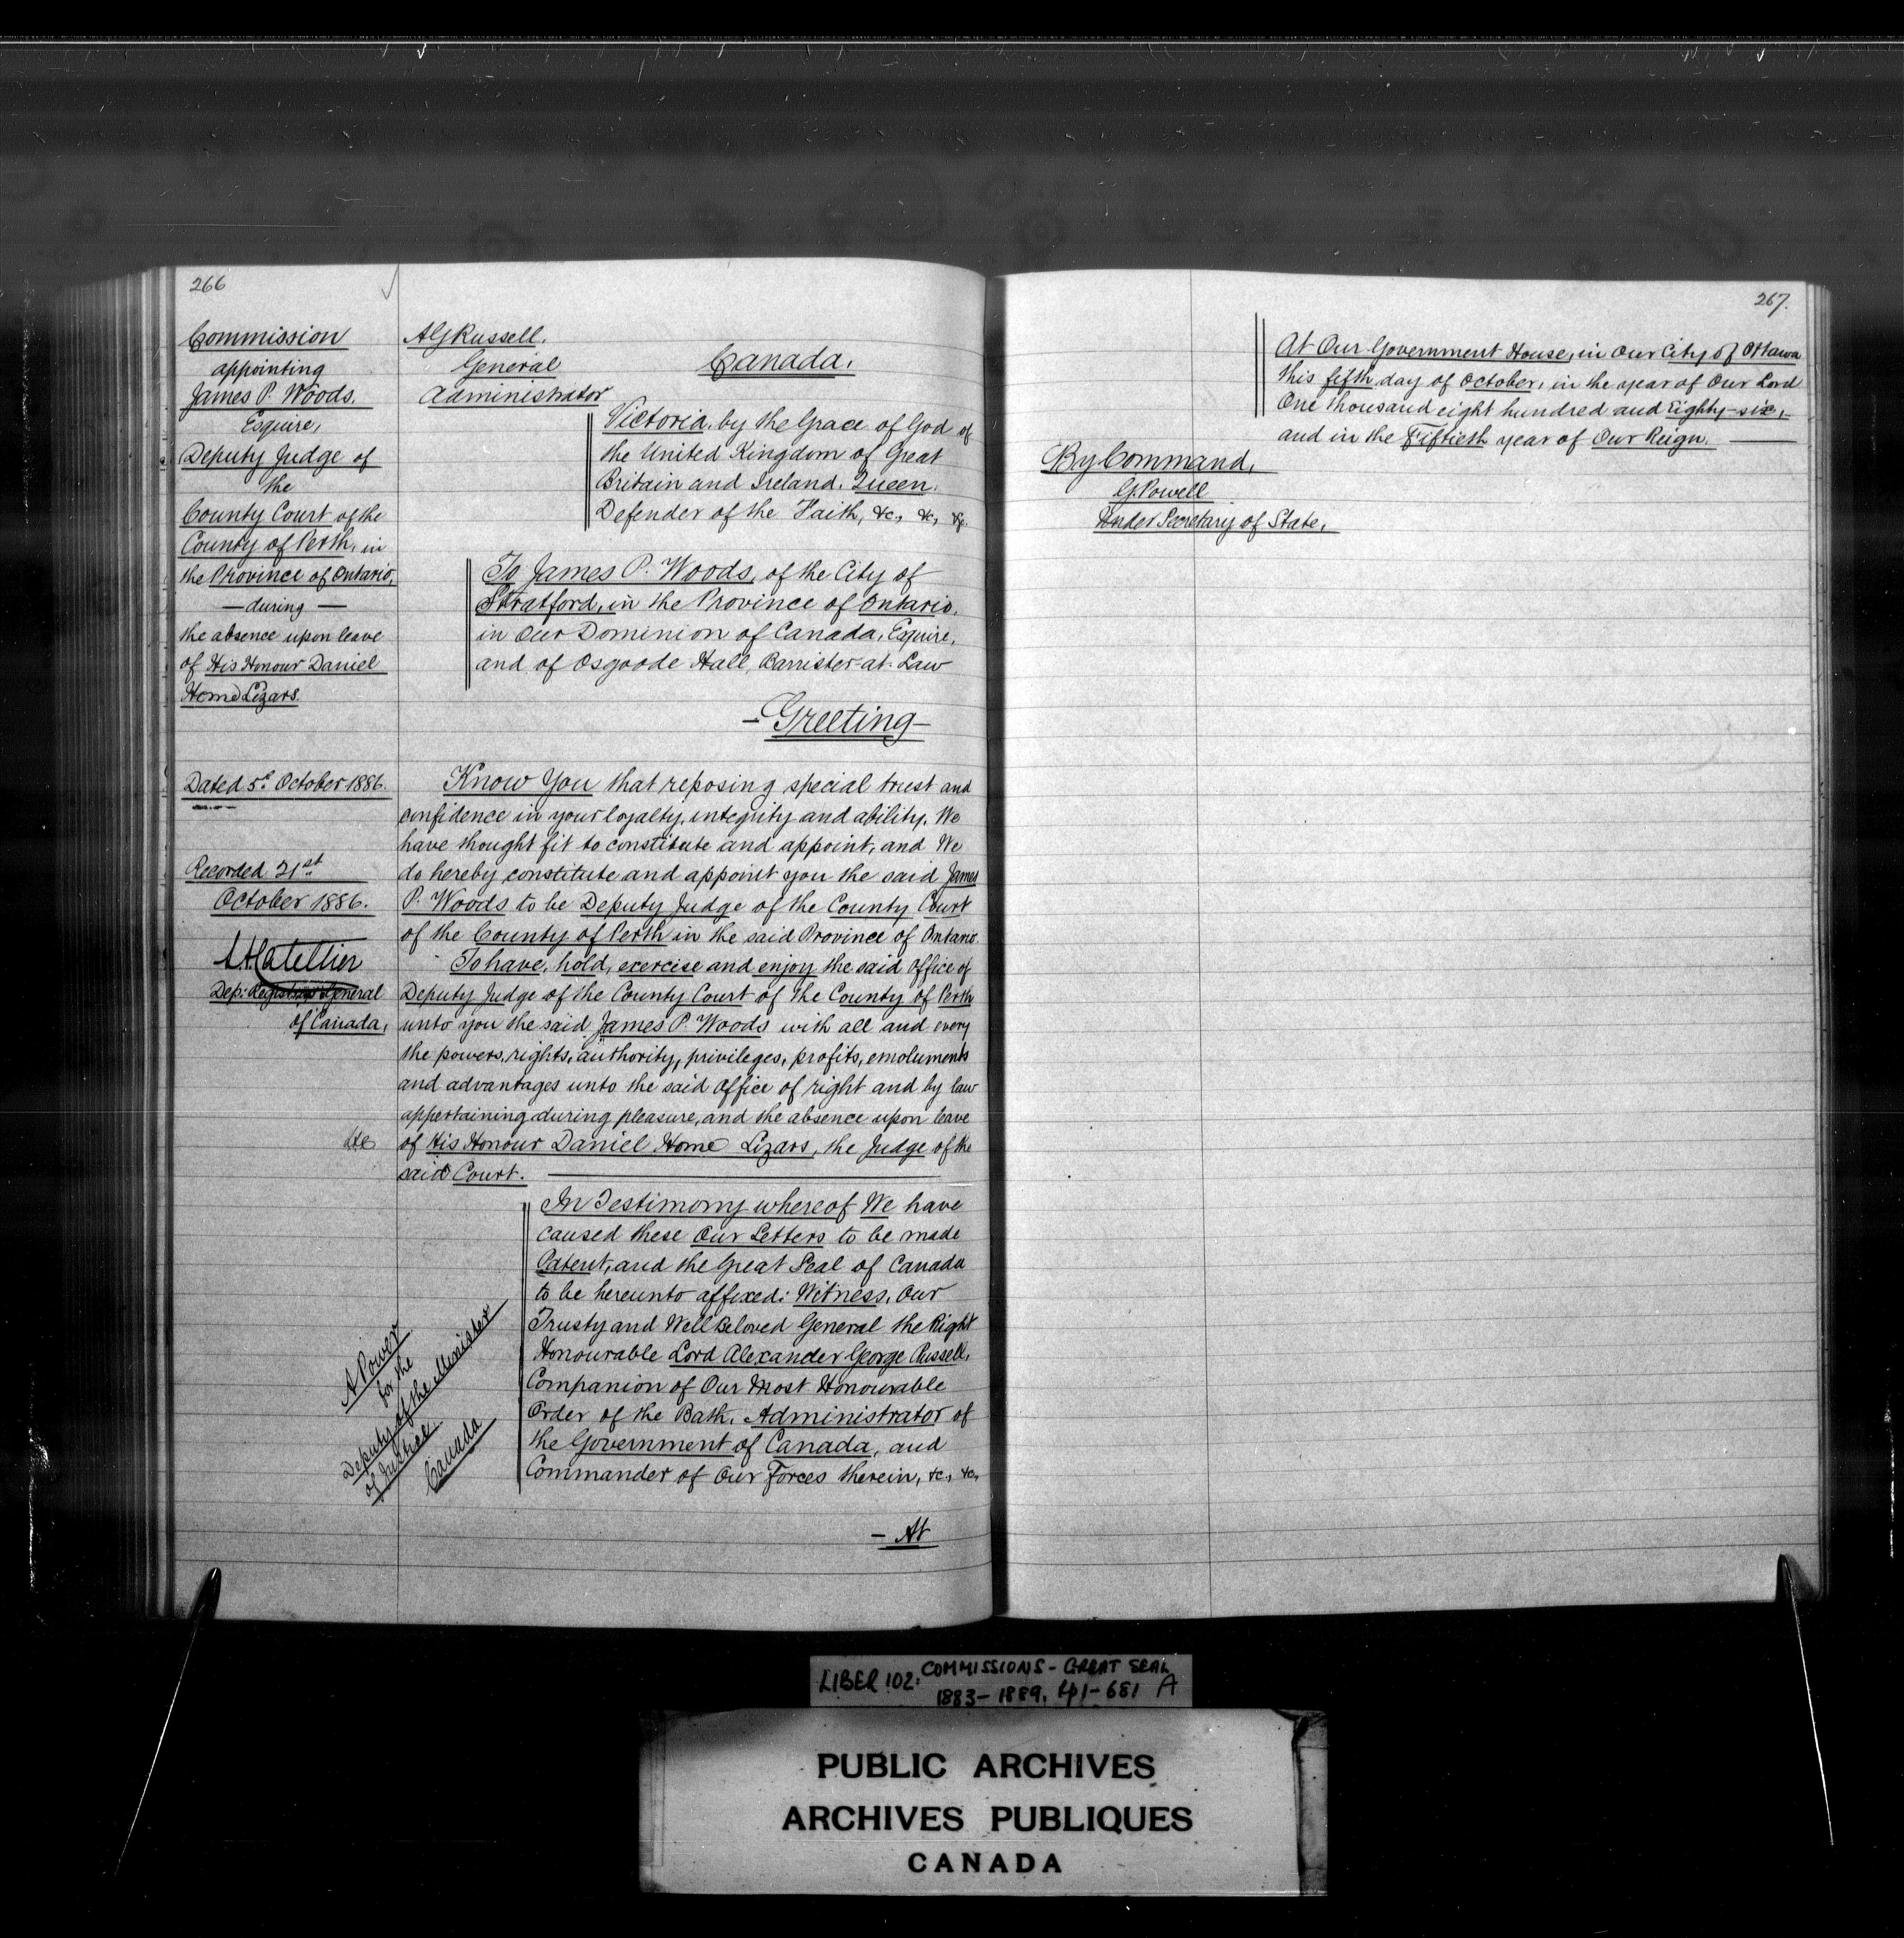 266
Commission
appointing
James P. Woods.
Esquire,
Deputy Judge of
the
County Court of the
County of Perth, in
the Province of Ontario,
— during —
the absence upon leave
of His Honour Daniel
Home Lizars.
Dated 5th October 1886.
Recorded 21st
October 1886.
Dep: Registrar General
of Canada,
A Power
for the
Deputy of the Minister
of Justice
Canada
AGRussell.
General
Administrator
Canada.
Victoria, by the Grace of God of
the United Kingdom of Great
Britain and Ireland, Queen,
Defender of the Faith, &c., &c, &c.
To James P. Woods, of the City of
Stratford, in the Province of Ontario,
in Our Dominion of Canada, Esquire,
and of Osgoode Hall, Barrister-at-Law
— Greeting —
Know You that reposing special trust and
confidence in your loyalty, integrity and ability, We
have thought fit to constitute and appoint, and We
do hereby constitute and appoint you the said James
P. Woods to be Deputy Judge of the County Court
of the County of Perth in the said Province of Ontario.
To have, hold, exercise and enjoy the said Office of
Deputy Judge of the County Court of the County of Perth
unto you the said James P. Woods with all and every
the powers, rights, authority, privileges, profits, emoluments
and advantages unto the said Office of right and by law
appertaining during pleasure, and the absence upon leave
of His Honour Daniel Home Lizars, the Judge of the
said Court.
In Testimony whereof We have
caused these Our Letters to be made
Patent, and the Great Seal of Canada
to be hereunto affixed: Witness, Our
Trusty and Well Beloved General the Right
Honourable Lord Alexander George Russell,
Companion of Our Most Honourable
Order of the Bath, Administrator of
the Government of Canada, and
Commander of Our Forces therein, &c., &c.,
— At
267.
At Our Government House, in Our City of Ottawa
this fifth day of October, in the year of Our Lord
One thousand eight hundred and Eighty-six,
and in the Fiftieth year of Our Reign.
By Command,
G. Powell
Under Secretary of State,
LIBER 102: COMMISSIONS - GREAT SEAL
1883 - 1889, pp1-681 A
PUBLIC ARCHIVES
ARCHIVES PUBLIQUES
CANADA